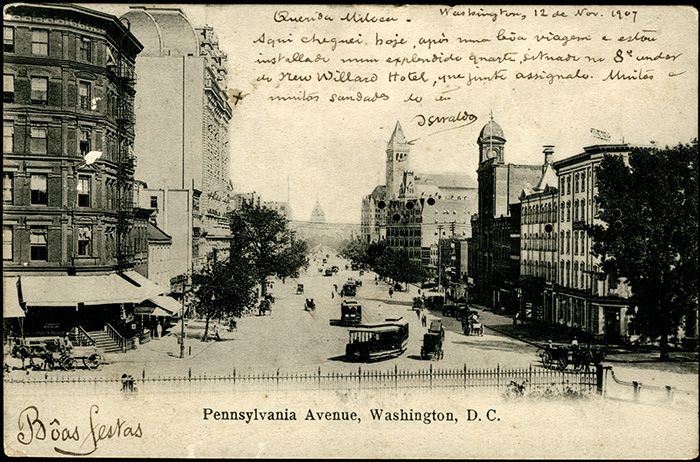 Querida Miloca. Washington, 12 de Nov. 1907
Aqui cheguei, hoje, após uma bôa viagem e estou
installado num esplendido quarto, situado no 8º andar
do New Willard Hotel, que junto assignalo. Muitas e
muitas saudades do teu
Oswaldo
Pennsylvania Avenue, Washington, D. C.
Bôas festas